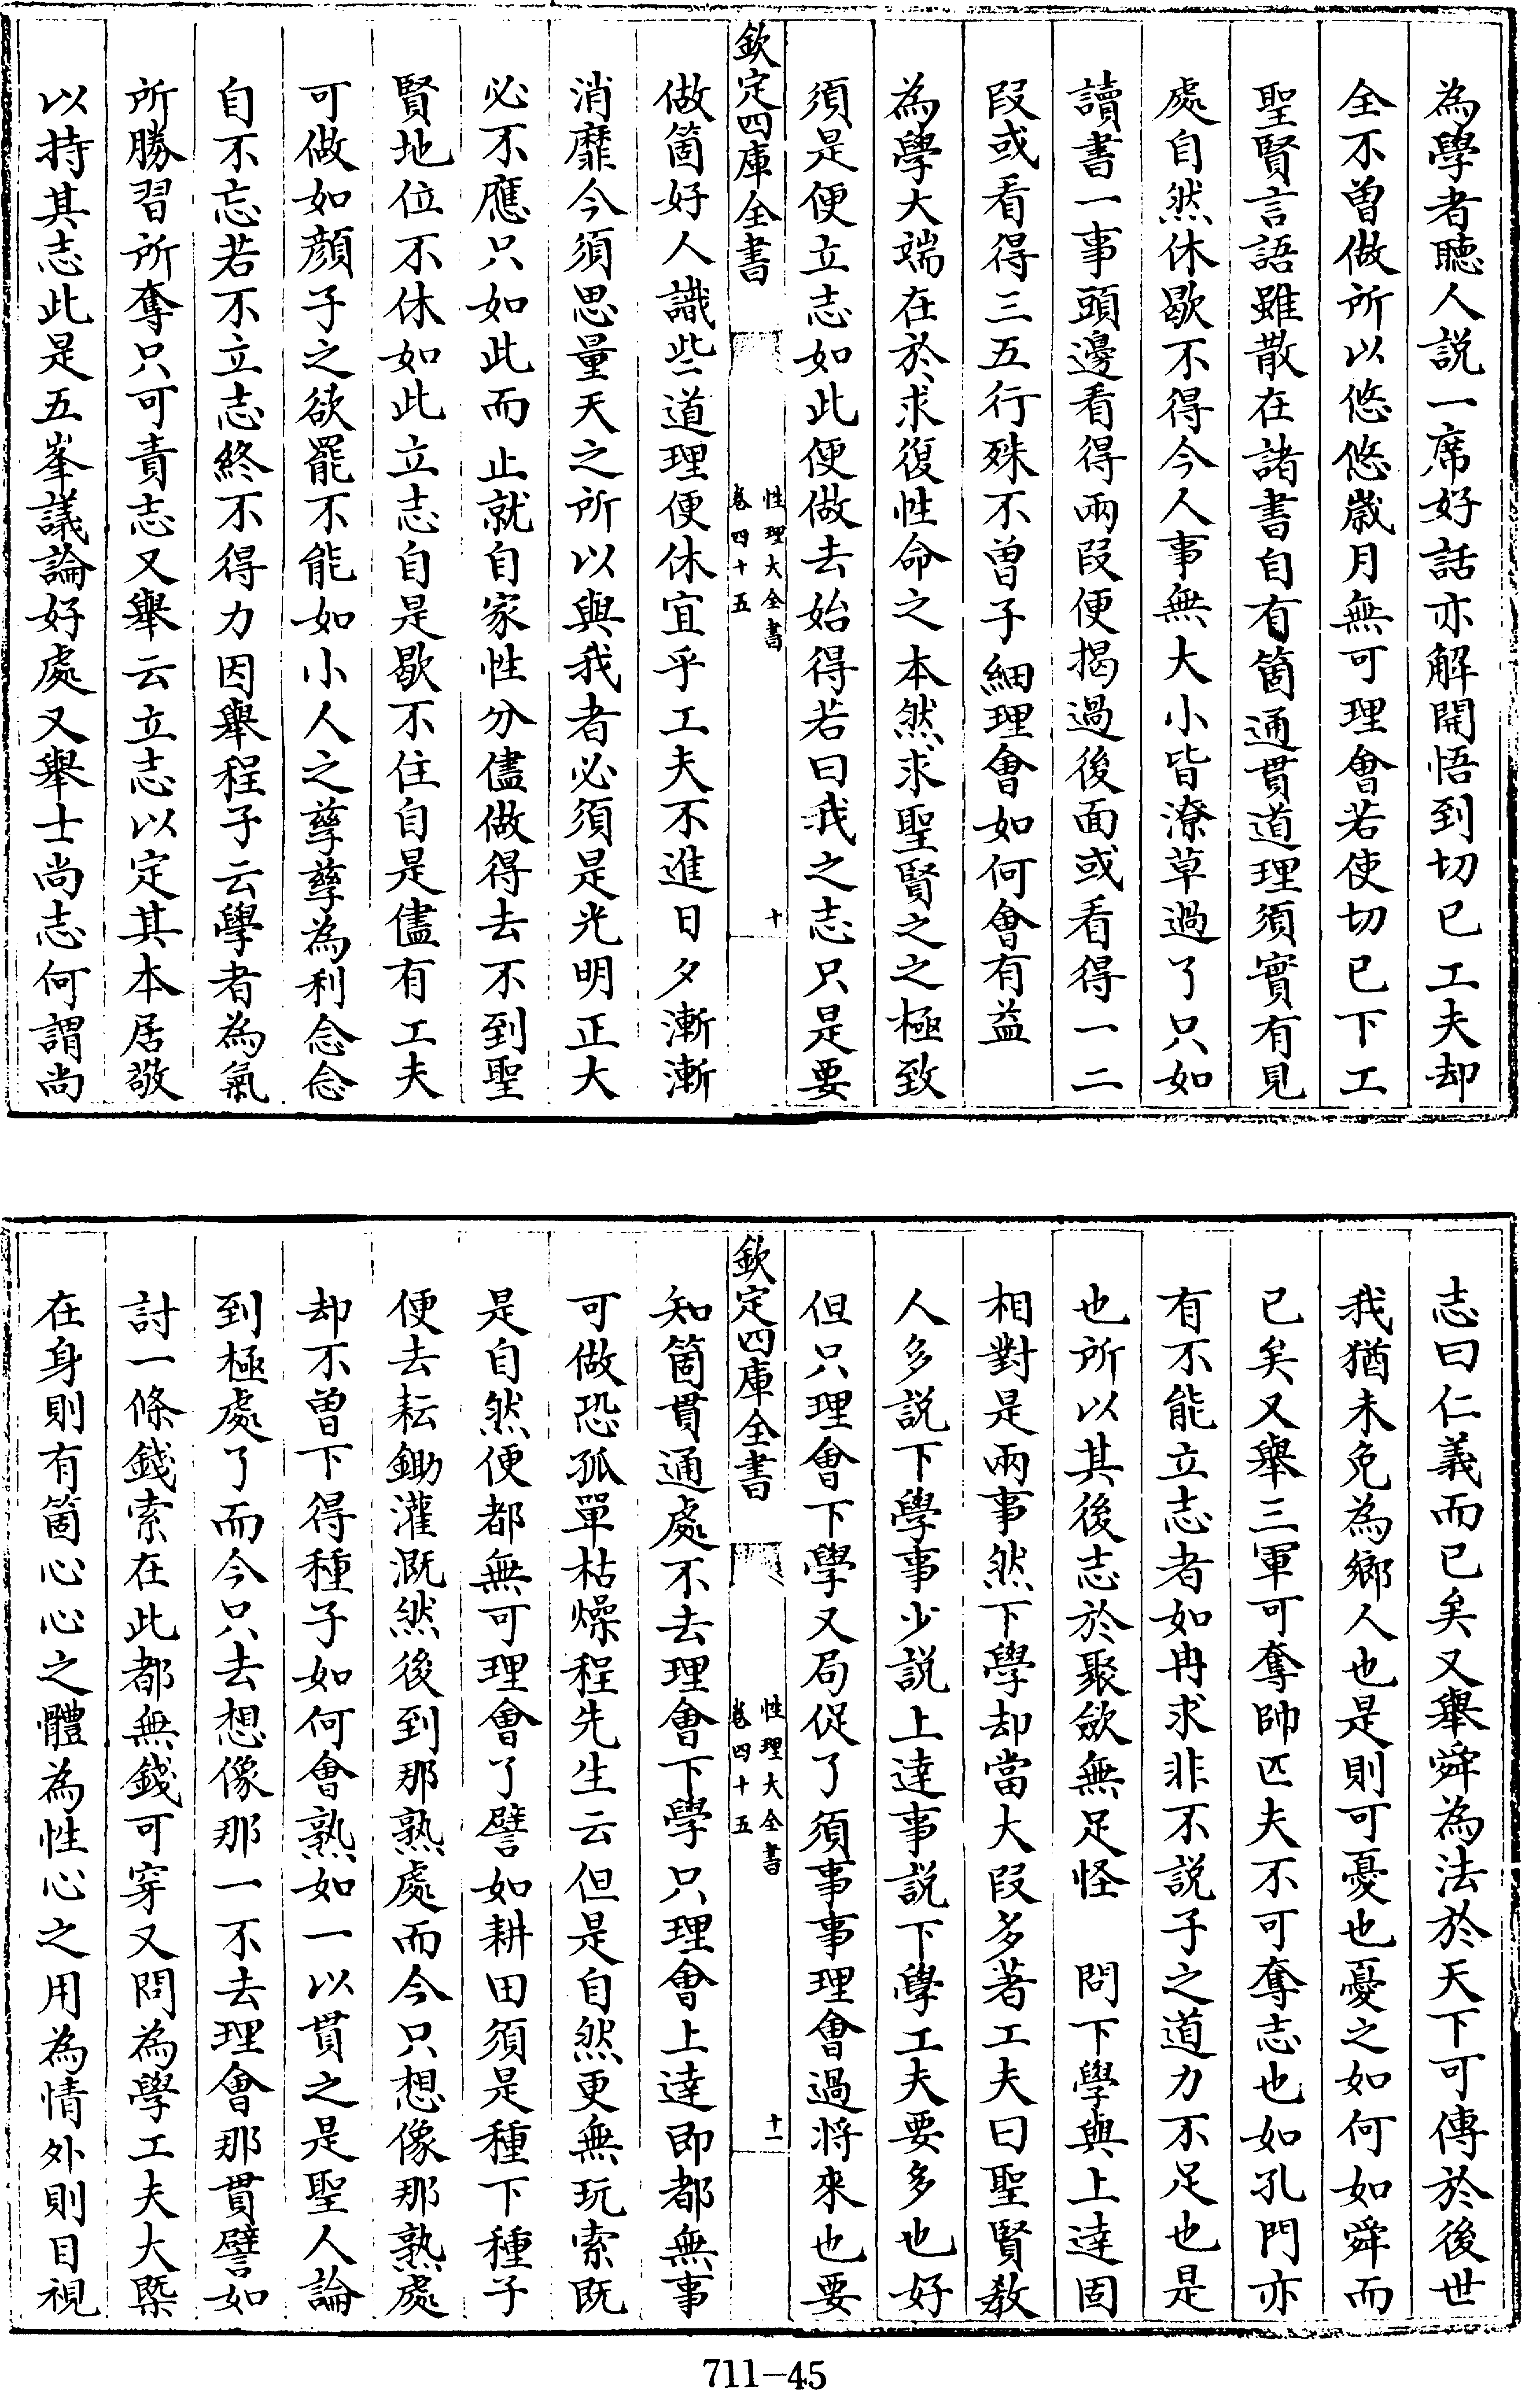 為學者聽人説一席好話亦解開悟到切已工夫却
全不曽做所以悠悠歲月無可理會若使切已下工
聖賢言語雖散在諸書自有箇通貫道理須實有見
處自然休歇不得今人事無大小皆潦草過了只如
讀書一事頭邊看得兩段便揭過後面或看得一二
段或看得三五行殊不曽子細理會如何會有益
為學大端在於求復性命之本然求聖賢之之極致
須是便立志如此便做去始得若曰我之志只是要
欽定四庫全書
性理大全書
卷四十五
十
做箇好人識些道理便休宜乎工夫不進日夕漸漸
消靡今須思量天之所以與我者必須是光明正大
必不應只如此而止就自家性分儘做得去不到聖
賢地位不休如此立志自是歇不住自是儘有工夫
可做如顔子之欲罷不能如小人之孳孳為利念念
自不忘若不立志終不得力因舉程子云學者為氣
所勝習所奪只可責志又舉云立志以定其本居敬
以持其志此是五峯議論好處又舉士尚志何謂尚
志曰仁義而已矣又舉舜為法於天下可傳於後世
我猶未免為鄉人也是則可憂也憂之如何如舜而
已矣又舉三軍可奪帥匹夫不可奪志也如孔門亦
有不能立志者如冉求非不説子之道力不足也是
也所以其後志於聚斂無足怪　問下學與上達固
相對是兩事然下學却當大段多著工夫曰聖賢教
人多説下學事少説上達事説下學工夫要多也好
但只理會下學又局促了須事事理會過將來也要
欽定四庫全書
性理大全書
卷四十五
十一
知箇貫通處不去理會下學只理會上達即都無事
可做恐孤單枯燥程先生云但是自然更無玩索既
是自然便都無可理會了譬如耕田須是種下種子
便去耘鋤灌溉然後到那熟處而今只想像那熟處
却不曽下得種子如何會熟如一以貫之是聖人論
到極處了而今只去想像那一不去理會那貫譬如
討一條錢索在此都無錢可穿又問為學工夫大槩
在身則有箇心心之體為性心之用為情外則目視
711-45